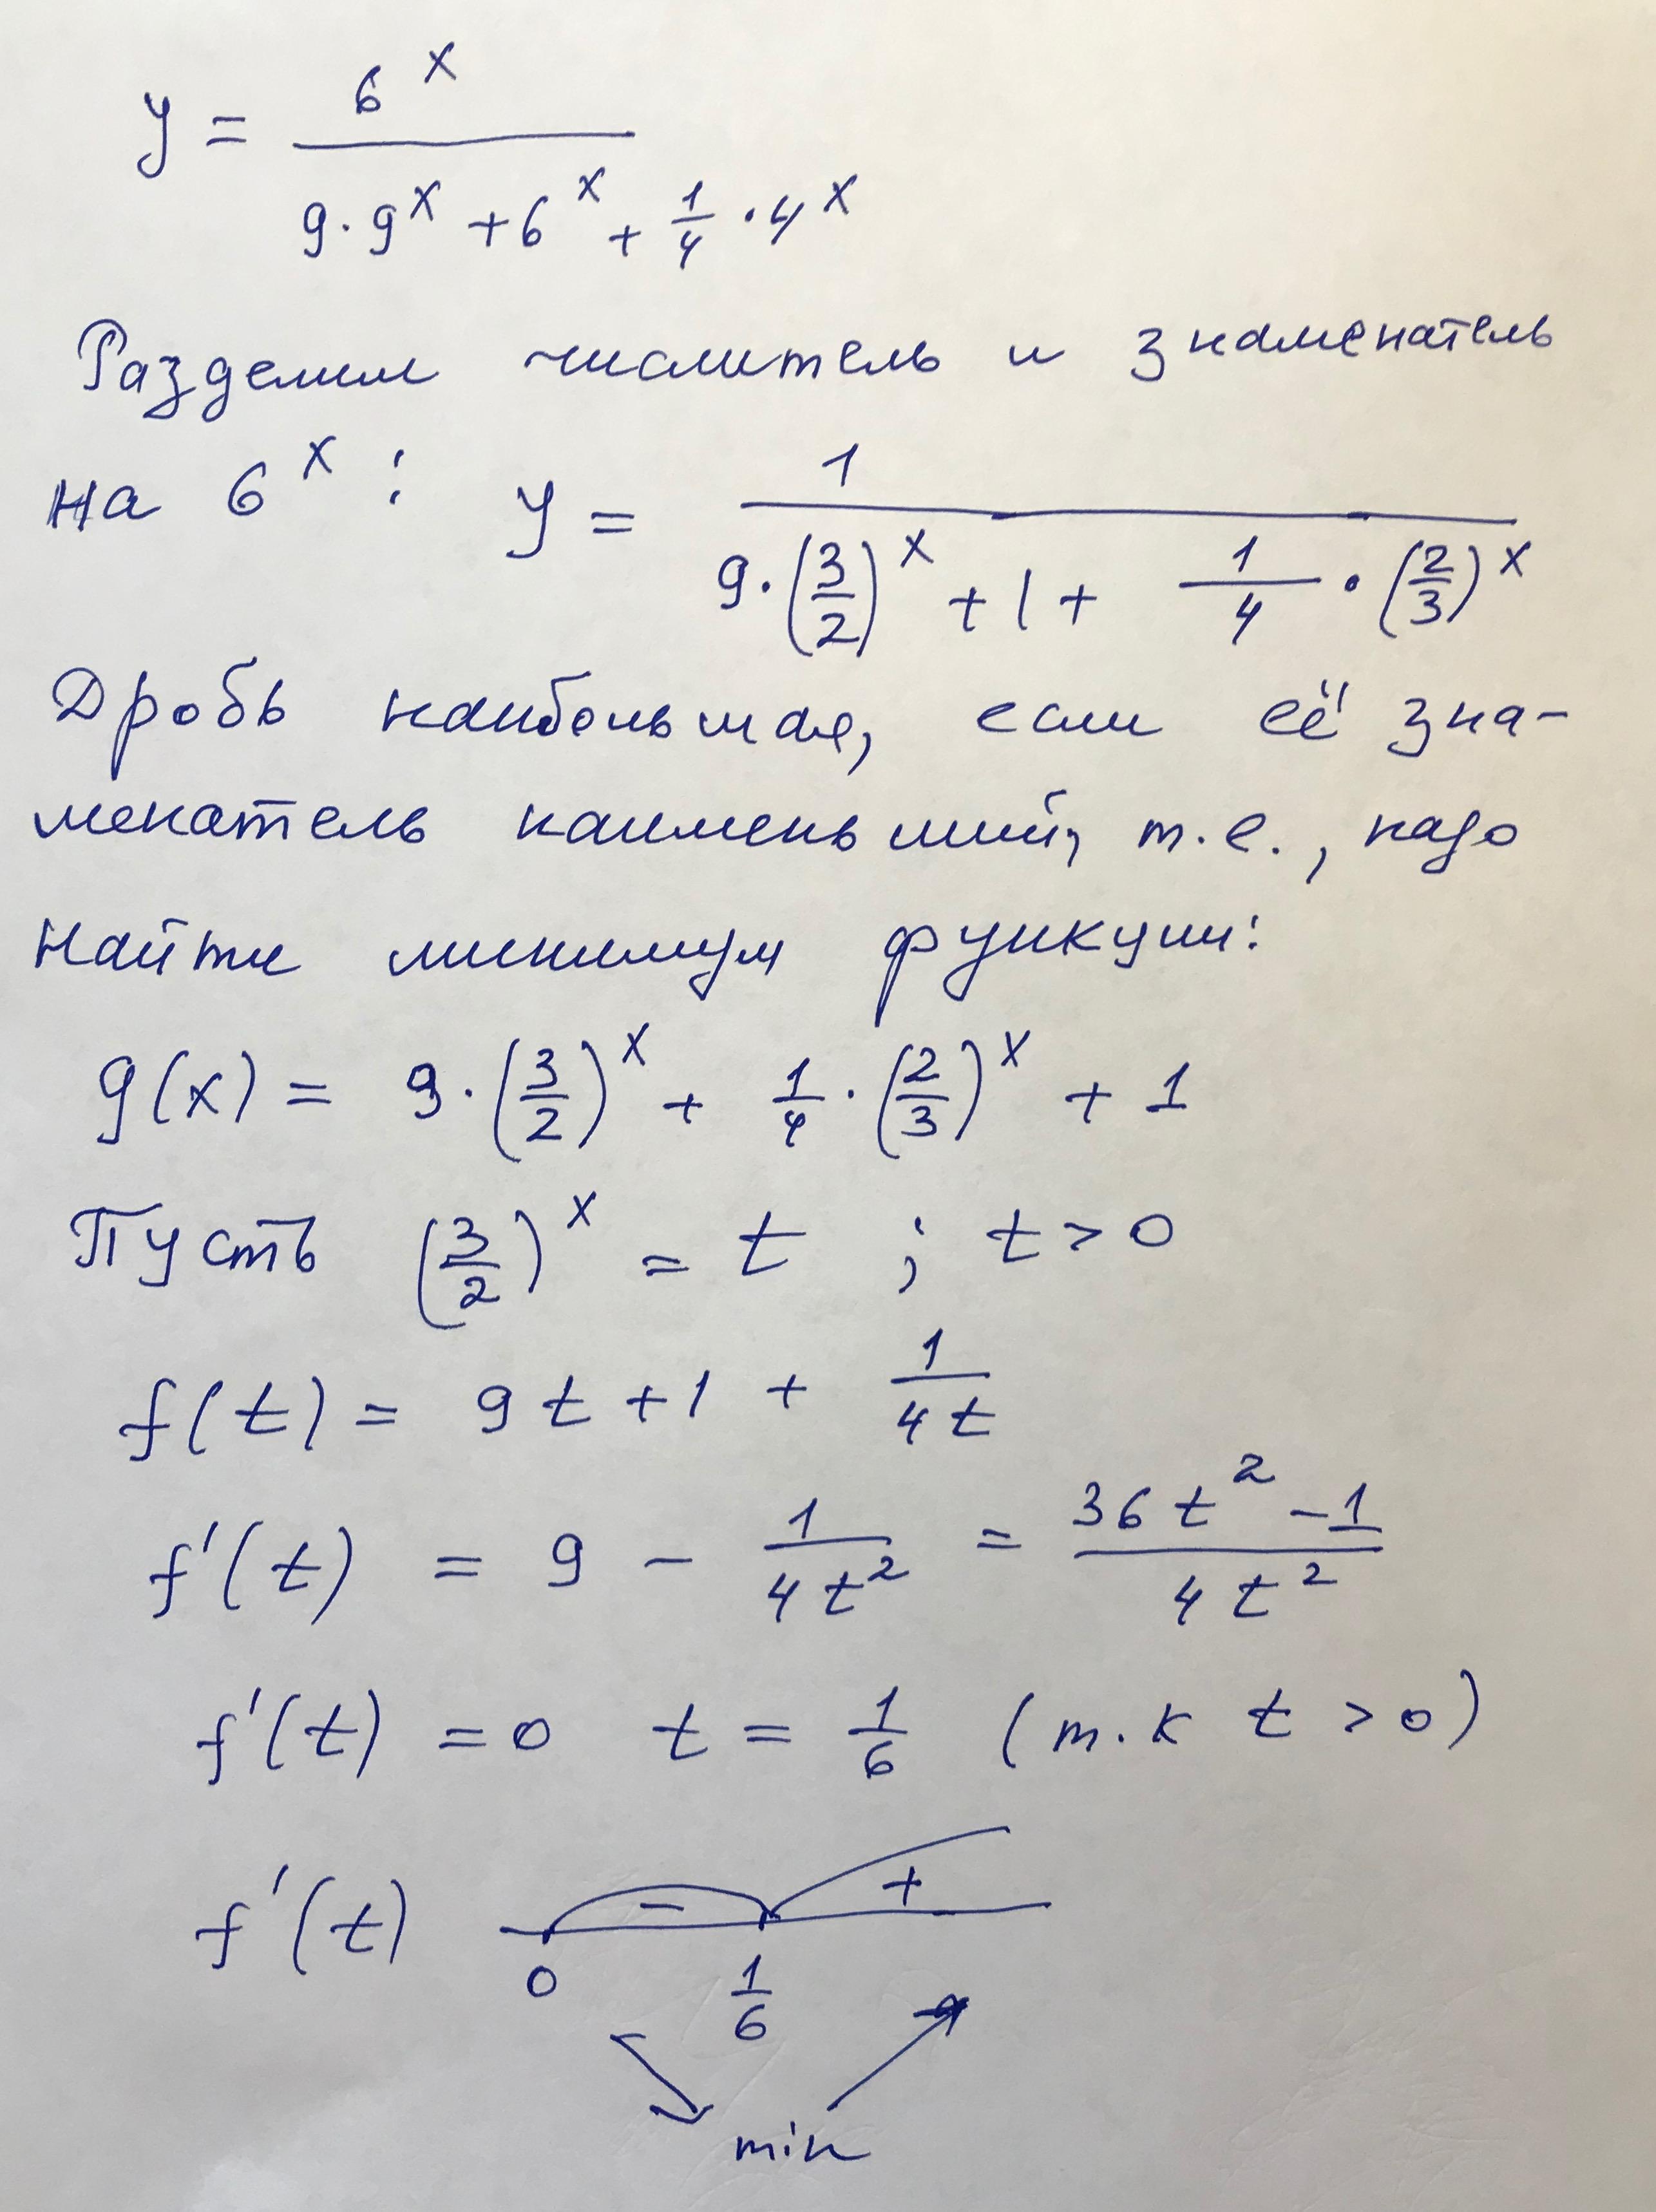 y = 6^x / (9·9^x + 6^x + 1/4·4^x)
Разделим числитель и знаменатель
на 6^x: y = 1 / (9·(3/2)^x + 1 + 1/4·(2/3)^x)
Дробь наибольшая, если её зна-
менатель наименьший, т.е., надо
найти минимум функции:
g(x) = 9·(3/2)^x + 1/4·(2/3)^x + 1
Пусть (3/2)^x = t ; t > 0
f(t) = 9t + 1 + 1/(4t)
f'(t) = 9 − 1/(4t²) = (36t² − 1)/(4t²)
f'(t) = 0 t = 1/6 (т.к t > 0)
f'(t) − +
0 1/6
min